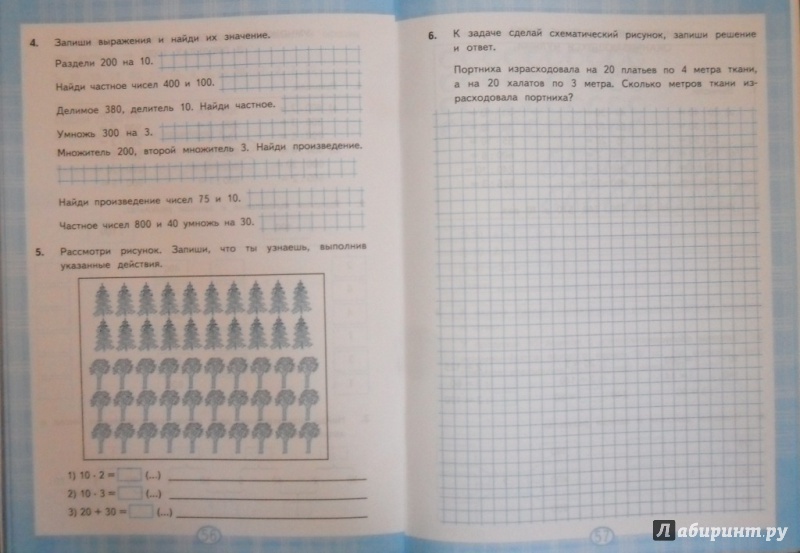 4. Запиши выражения и найди их значение.
Раздели 200 на 10.
Найди частное чисел 400 и 100.
Делимое 380, делитель 10. Найди частное.
Умножь 300 на 3.
Множитель 200, второй множитель 3. Найди произведение.
Найди произведение чисел 75 и 10.
Частное чисел 800 и 40 умножь на 30.
5. Рассмотри рисунок. Запиши, что ты узнаешь, выполнив
указанные действия.
1) 10 · 2 = (...)
2) 10 · 3 = (...)
3) 20 + 30 = (...)
56
6. К задаче сделай схематический рисунок, запиши решение
и ответ.
Портниха израсходовала на 20 платьев по 4 метра ткани,
а на 20 халатов по 3 метра. Сколько метров ткани из-
расходовала портниха?
57
Лабиринт.ру